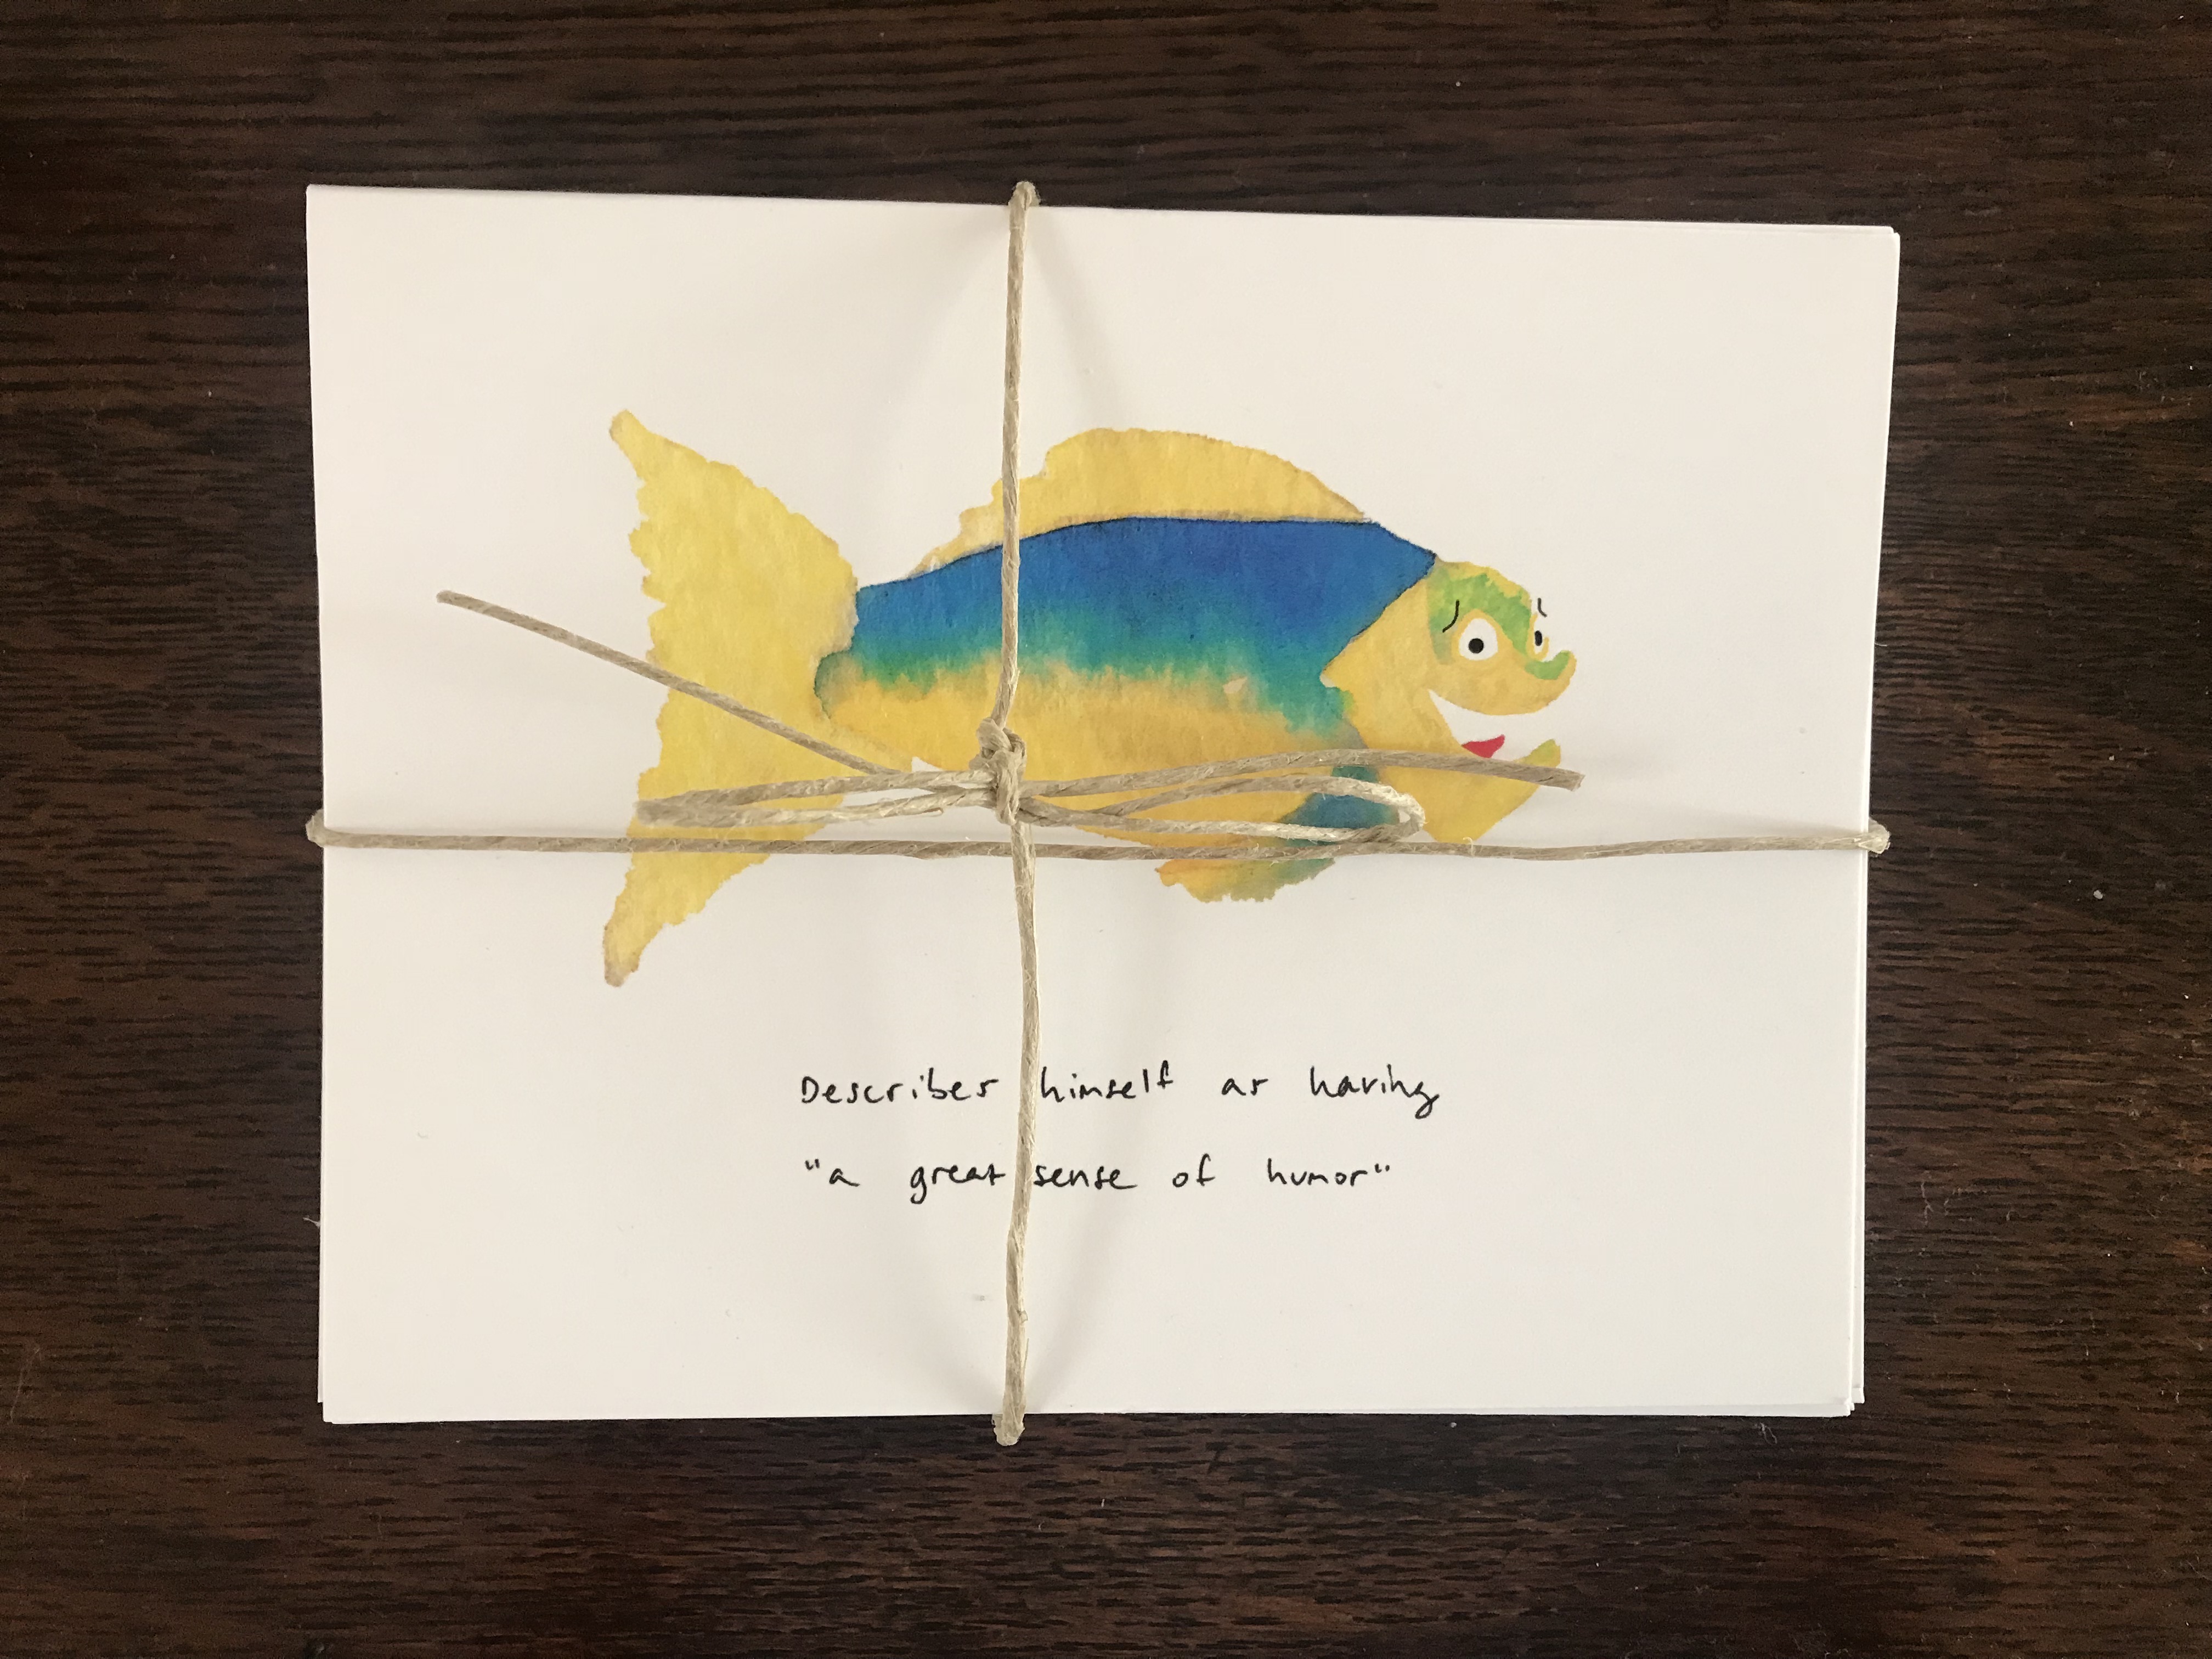 Describes himself as having
"a great sense of humor"